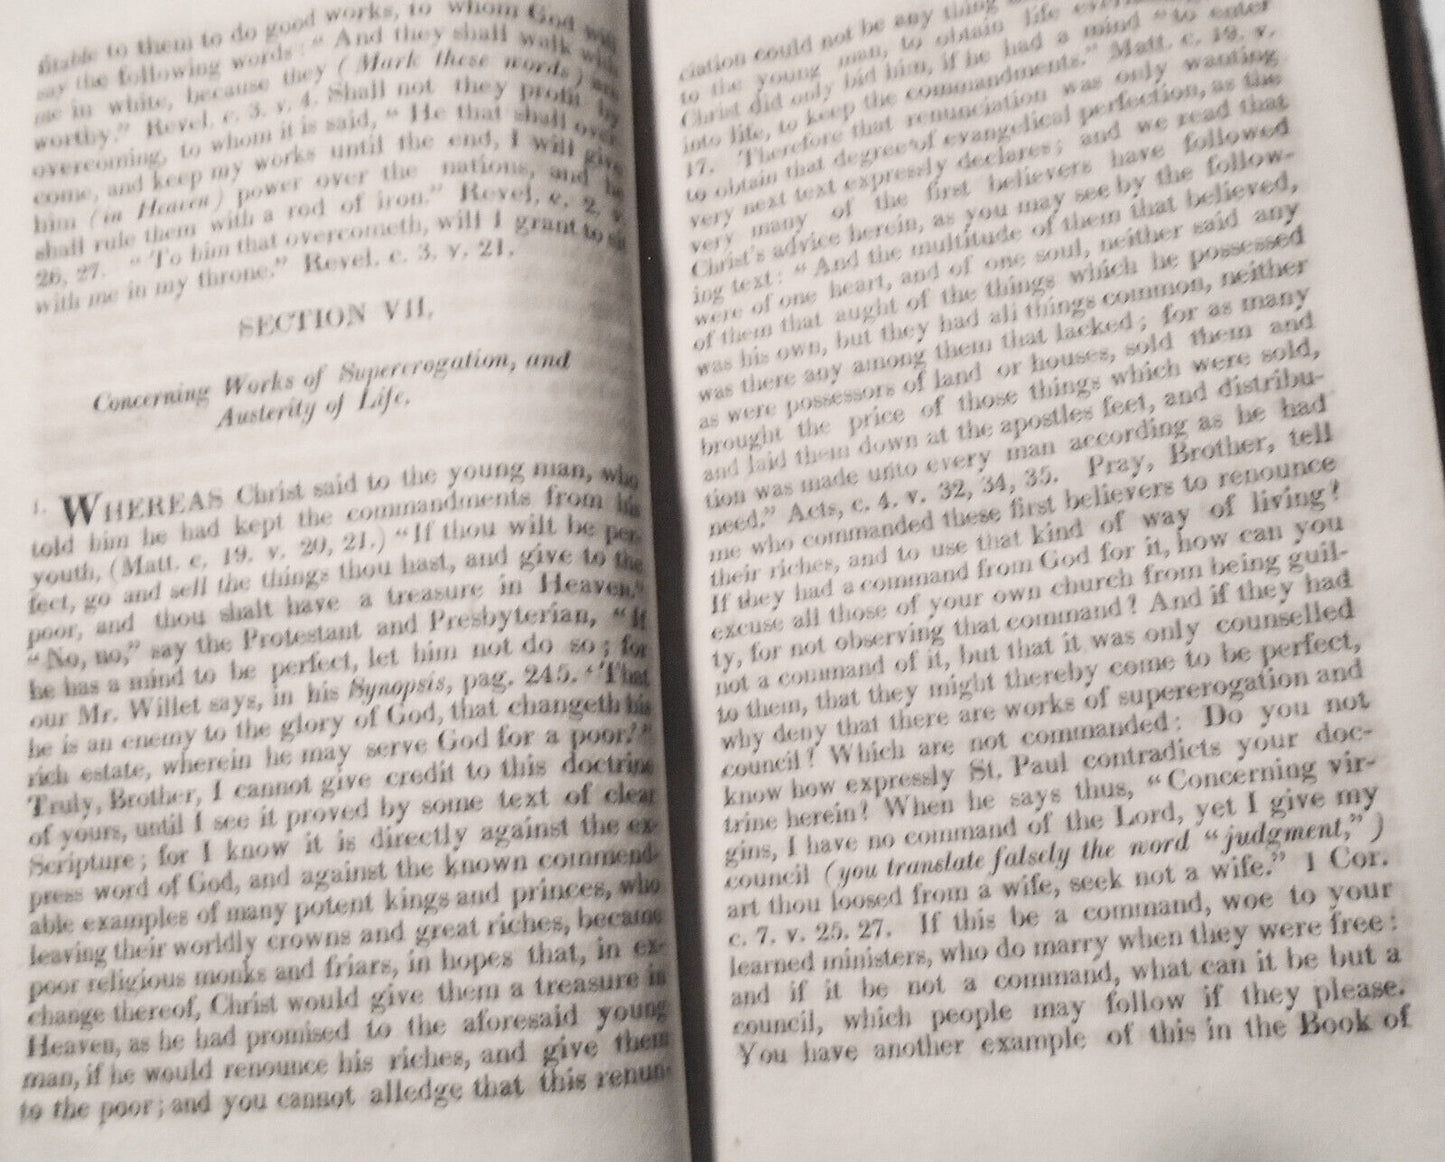 fitable to them to do good works, to whom God will
say the following words: "And they shall walk with
me in white, because they (Mark these words) are
worthy." Revel. c. 3. v. 4. Shall not they profit by
overcoming, to whom it is said, "He that shall over-
come, and keep my works until the end, I will give
him (in Heaven) power over the nations, and he
shall rule them with a rod of iron." Revel. c. 2. v.
26, 27. "To him that overcometh, will I grant to sit
with me in my throne." Revel. c. 3. v. 21.
SECTION VII.
Concerning Works of Supererogation, and
Austerity of Life.
1. WHEREAS Christ said to the young man, who
told him he had kept the commandments from his
youth, (Matt. c. 19. v. 20, 21.) "If thou wilt be per-
fect, go and sell the things thou hast, and give to the
poor, and thou shalt have a treasure in Heaven."
"No, no," say the Protestant and Presbyterian, "If
he has a mind to be perfect, let him not do so; for
our Mr. Willet says, in his Synopsis, pag. 245. 'That
he is an enemy to the glory of God, that changeth his
rich estate, wherein he may serve God for a poor.'"
Truly, Brother, I cannot give credit to this doctrine
of yours, until I see it proved by some text of clear
Scripture; for I know it is directly against the ex-
press word of God, and against the known commend-
able examples of many potent kings and princes, who
leaving their worldly crowns and great riches, became
poor religious monks and friars, in hopes that, in ex-
change thereof, Christ would give them a treasure in
Heaven, as he had promised to the aforesaid young
man, if he would renounce his riches, and give them
to the poor; and you cannot alledge that this renun-
ciation could not be any thing
to the young man, to obtain life
Christ did only bid him, if he had a mind "to enter
into life, to keep the commandments." Matt. c. 19. v.
17. Therefore that renunciation was only wanting
to obtain that degree of evangelical perfection, as the
very next text expressly declares; and we read that
very many of the first believers have followed
Christ's advice herein, as you may see by the follow-
ing text: "And the multitude of them that believed,
were of one heart, and of one soul, neither said any
of them that aught of the things which he possessed
was his own, but they had all things common, neither
was there any among them that lacked; for as many
as were possessors of land or houses, sold them and
brought the price of those things which were sold,
and laid them down at the apostles feet, and distribu-
tion was made unto every man according as he had
need." Acts, c. 4. v. 32, 34, 35. Pray, Brother, tell
me who commanded these first believers to renounce
their riches, and to use that kind of way of living?
If they had a command from God for it, how can you
excuse all those of your own church from being guil-
ty, for not observing that command? And if they had
not a command of it, but that it was only counselled
to them, that they might thereby come to be perfect,
why deny that there are works of supererogation and
council? Which are not commanded: Do you not
know how expressly St. Paul contradicts your doc-
trine herein? When he says thus, "Concerning vir-
gins, I have no command of the Lord, yet I give my
council (you translate falsely the word "judgment,")
art thou loosed from a wife, seek not a wife." 1 Cor.
c. 7. v. 25. 27. If this be a command, woe to your
learned ministers, who do marry when they were free:
and if it be not a command, what can it be but a
council, which people may follow if they please.
You have another example of this in the Book of